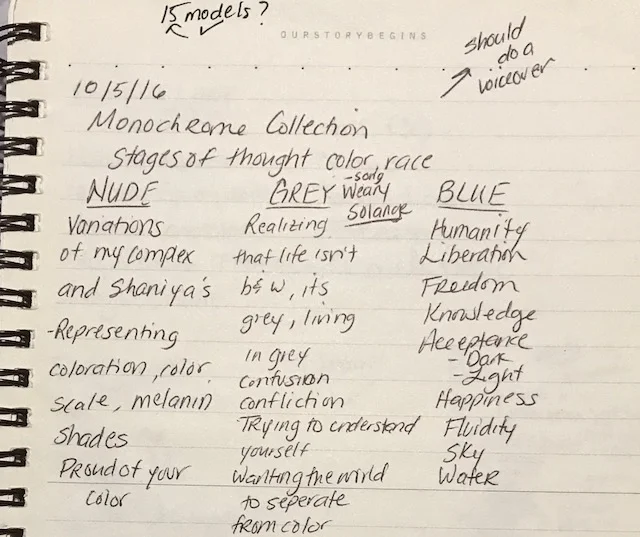 15 models?
OURSTORYBEGINS
should
do a
voiceover
10/5/16
Monochrome Collection
Stages of thought color, race
NUDE
Variations
of my complex
and Shaniya's
-Representing
coloration, color
scale, melanin
shades
Proud of your
color
GREY
-song
Weary
Solange
Realizing
that life isn't
b&w, its
grey, living
in grey
confusion
confliction
Trying to understand
yourself
Wanting the world
to seperate
from color
BLUE
Humanity
Liberation
Freedom
Knowledge
Acceptance
- Dark
- Light
Happiness
Fluidity
Sky
Water